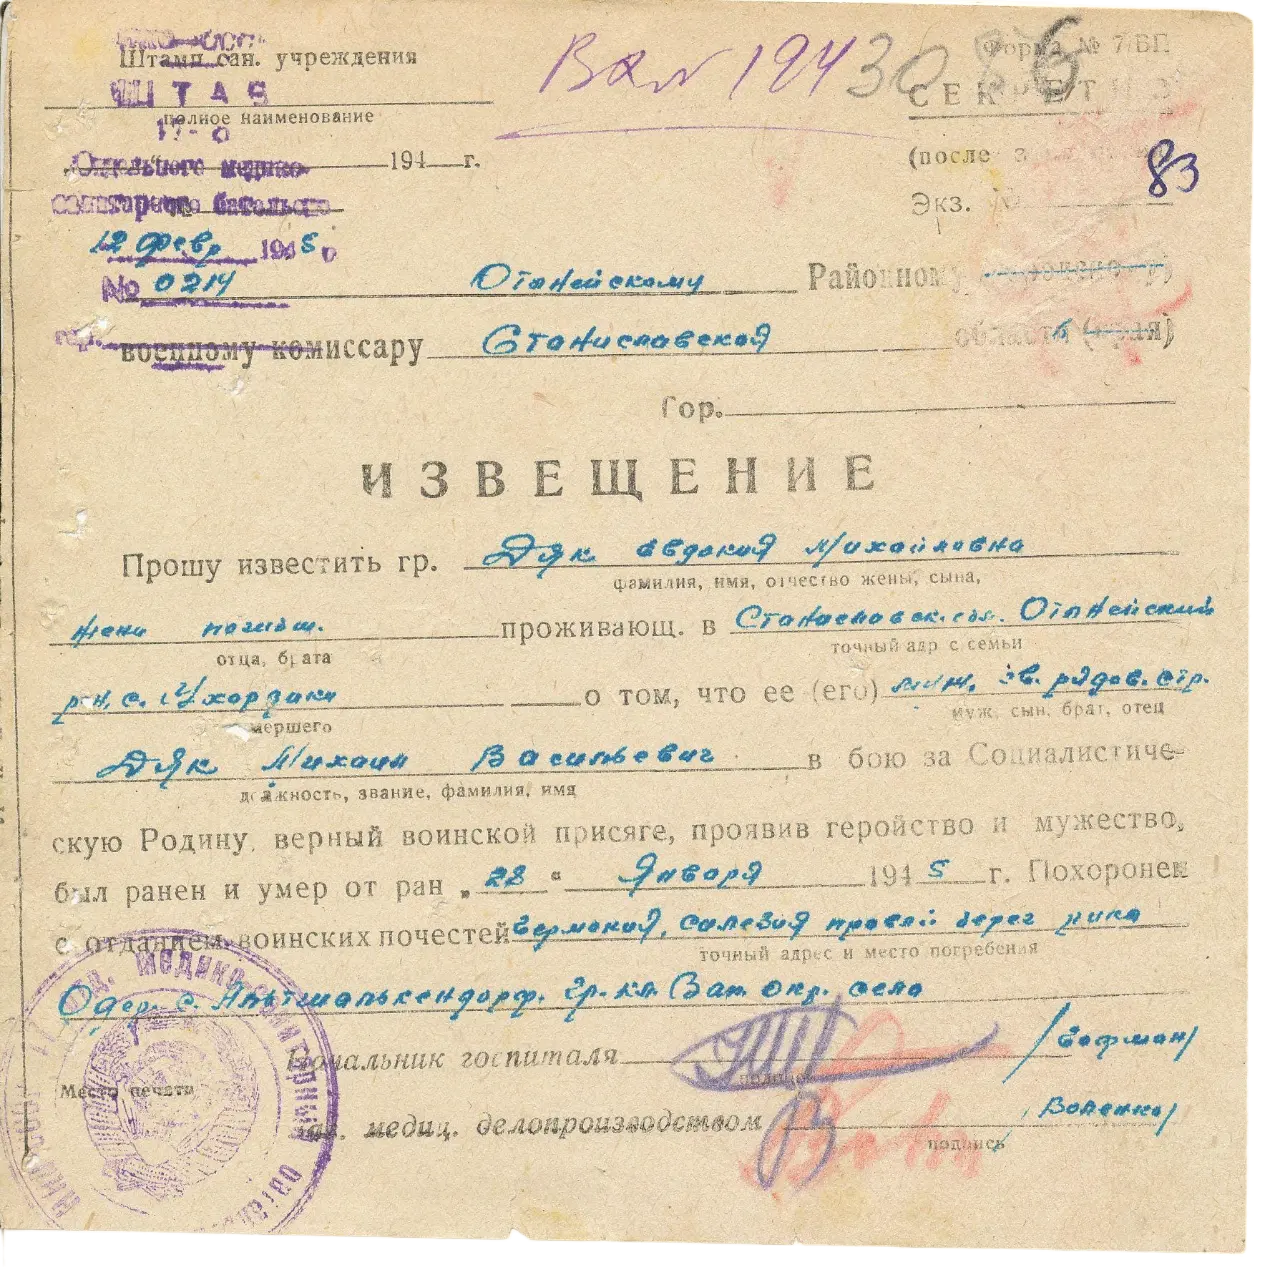 Штамп сан. учреждения
Вал 194
30
6
Форма № 7/БГ
ШТАБ
СЕКРЕТНО
полное наименование
17-о
194 г.
Отдельного медико-
(после
83
санитарного батальона
Экз.
12 февр 1945 г
№ 0214
Отанейскому Районному
военному комиссару Станиславской области (края)
Гор.
ИЗВЕЩЕНИЕ
Прошу известить гр. Дяк Евдокия Михайловна
фамилия, имя, отчество жены, сына,
жена погибш. проживающ. в Станиславск. обл. Отанейский
отца, брата
точный адрес семьи
рн. с. о том, что ее (его) муж. зв. рядов. стр.
мершего
муж, сын, брат, отец
Дяк Михаил Васильевич в бою за Социалистиче-
должность, звание, фамилия, имя
скую Родину, верный воинской присяге, проявив геройство и мужество,
был ранен и умер от ран „28" Января 1945 г. Похоронен
с отданием воинских почестей Германия, Силезия правый берег
точный адрес и место погребения
Одер. с. Альтшалькендорф. гр. кл. села
Начальник госпиталя /Гофман/
подпись
Место печати
Зав. медиц. делопроизводством /Воленко/
подпись